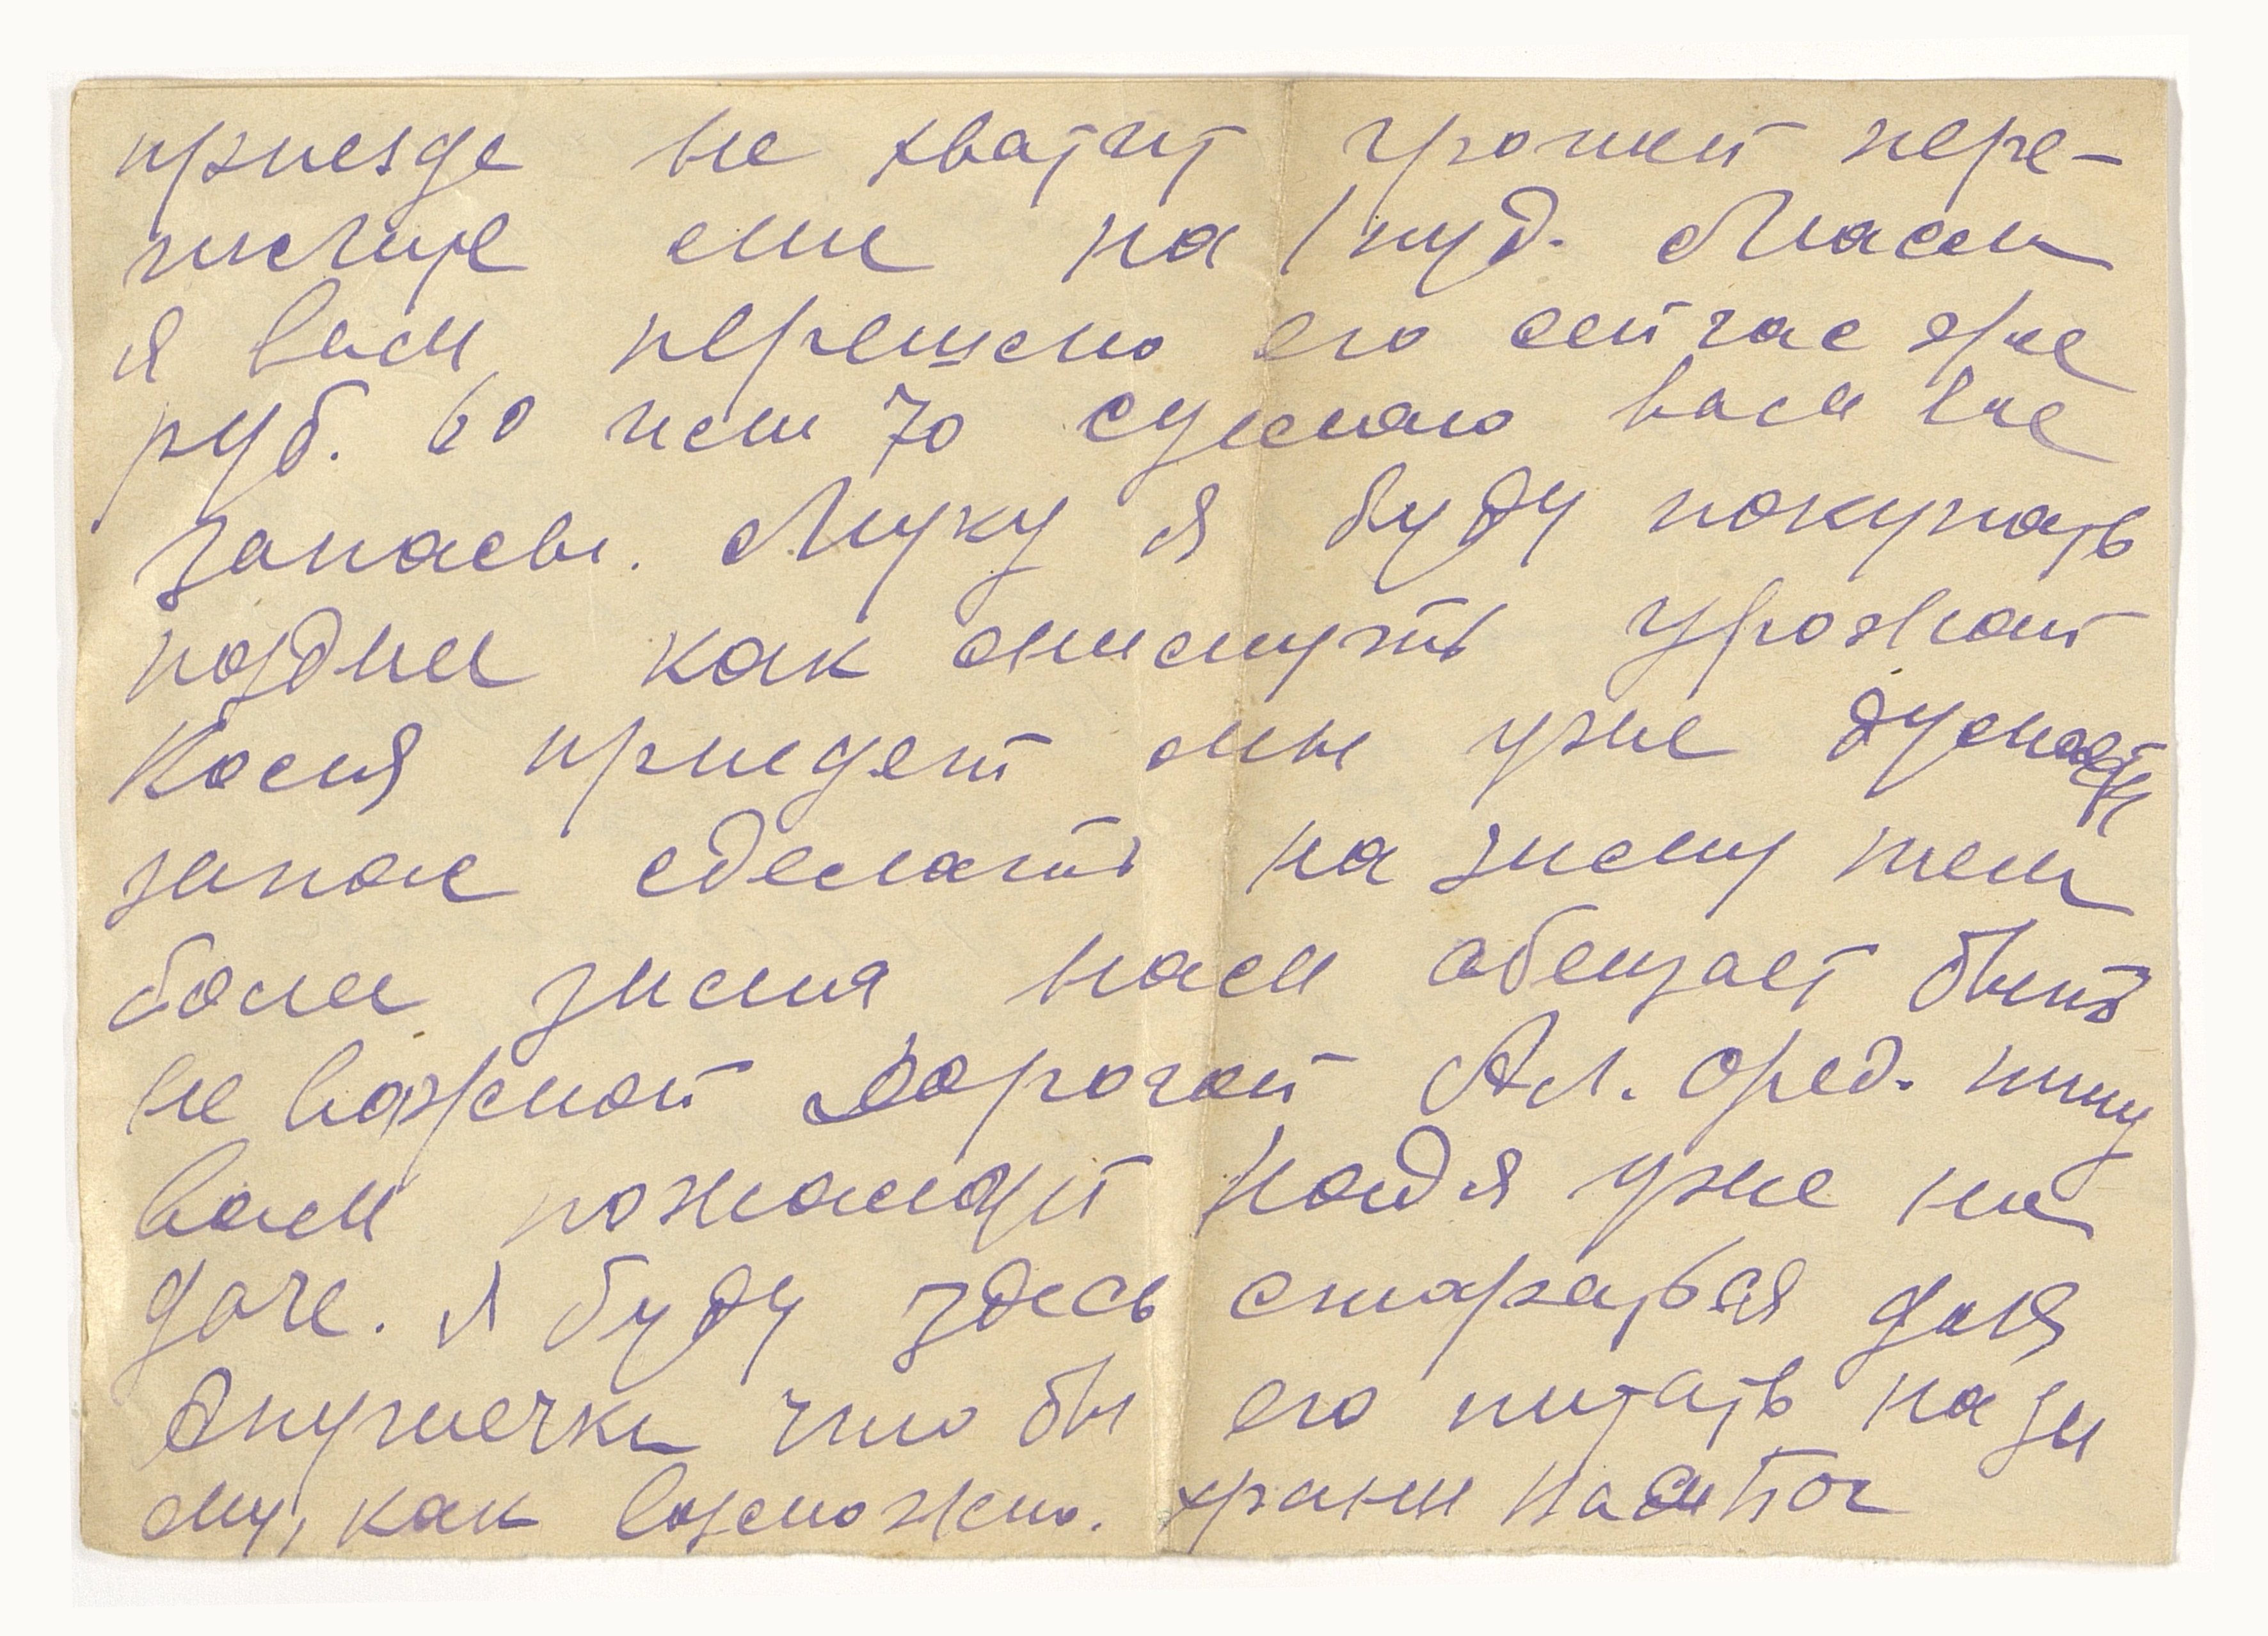 приезде не хватит грошей пере-
шлите мне на 1 пуд. Масла
я вам перешлю его сейчас же
руб. 60 или 70 сделаю вам все
запасы. Муку я буду покупать
поздней как снимуть урожай
Вася приедет мы уже думаем
запас сделать на зиму тем
боли зима нам обещает быть
не важной Дорогой Ал. Фед. пишу
вам пожалуй Надя уже на
даче. Я буду здесь старатся для
Внучечки что бы его питать на зи
му, как возможно. храни нас Бог